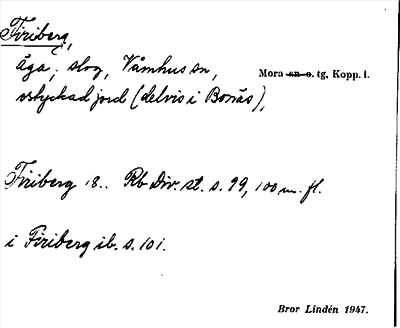 Firiberg,
äga, slog, Våmhus sn, Mora sn o. tg, Kopp. l.
ostyckad jord (delvis i Bonäs),
Firiberg i 8.. Rb Div. st. s. 99, 100 m. fl.
i Firiberg ib. s. 101.
Bror Lindén 1947.